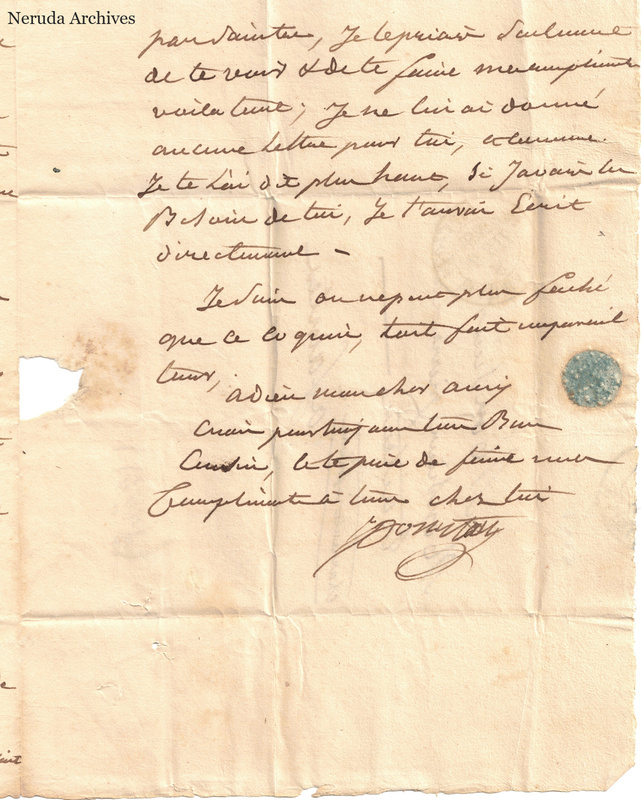 Neruda Archives
par Saintes, Je le priais seulement
de te voir & de te faire mes compliments
voila tout; Je ne lui ai donné
aucune Lettre pour toi, et comme
Je te l'ai dit plus haut, Si J'avais eu
Besoin de toi, Je t'aurais Ecrit
directement -
Je suis on ne peut plus faché
que ce coquin, t'ait fait un pareil
tour,
adieu mon cher ami
crois pour toujours ton Bon
Cousin, et te prie de faire mes
Compliments à tous chez toi